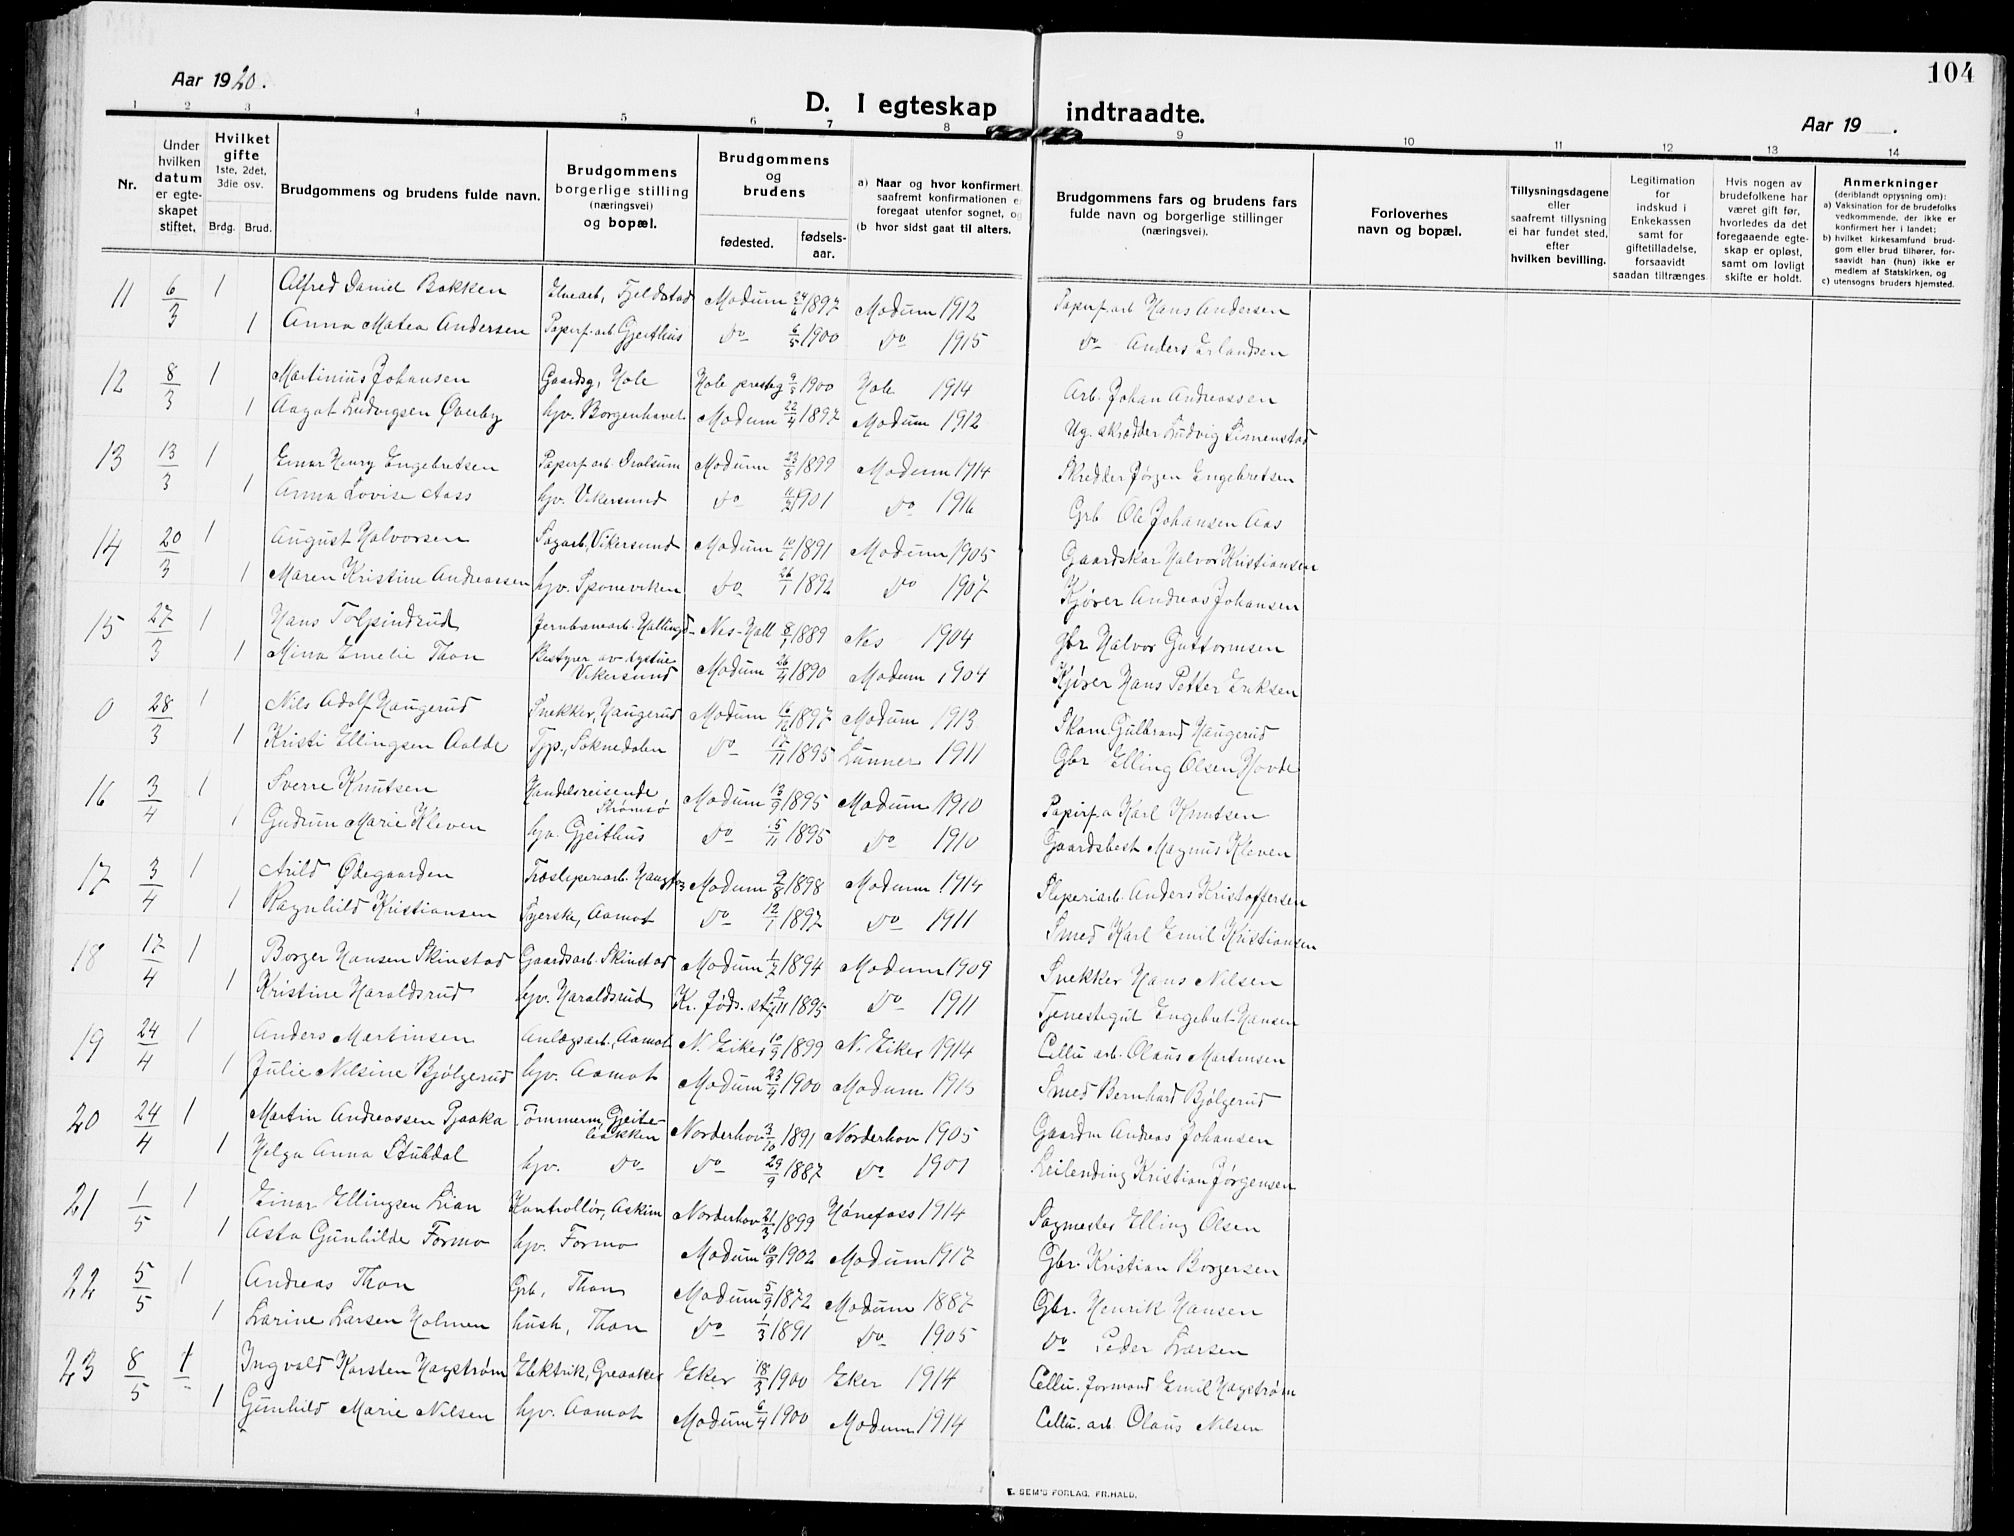 104
Aar 1920.
D. I egteskap indtraadte.
Aar 19 .
1 2 3 4 5 6 7 8 9 10 11 12 13 14
Nr.
Under hvilken datum er egteskapet stiftet.
Hvilket gifte 1ste, 2det, 3die osv.
Brdg. Brud.
Brudgommens og brudens fulde navn.
Brudgommens borgerlige stilling (næringsvei) og bopæl.
Brudgommens og brudens
fødested. fødselsaar.
a) Naar og hvor konfirmert, saafremt konfirmationen er foregaat utenfor sognet, og
(b hvor sidst gaat til alters.
Brudgommens fars og brudens fars fulde navn og borgerlige stillinger (næringsvei).
Forlovernes navn og bopæl.
Tillysningsdagene eller saafremt tillysning ei har fundet sted, efter hvilken bevilling.
Legitimation for indskud i Enkekassen samt for giftetilladelse, forsaavidt saadan tiltrænges
Hvis nogen av brudefolkene har været gift før, hvorledes da det foregaaende egteskap er opløst, samt om lovligt skifte er holdt.
Anmerkninger
(deriblandt opjysning om):
a) Vaksination for de brudefolks vedkommende, der ikke er konfirmert her i landet;
b) hvilket kirkesamfund brudgom eller brud tilhører, forsaavidt han (hun) ikke er medlem af Statskirken, og
c) utensogns bruders hjemsted.
11 6/3 1 Alfred Daniel Bakken Fjeldstad Modum 24/6 1897 Modum 1912 Papirf.arb Hans Andersen
1 Anna Matea Andersen Papirf.arb Gjeithus Do 6/5 1900 Do 1915 Do Anders Erlandsen
12 8/3 1 Martinius Johansen Gaardsg, Hole Hole presteg 9/5 1900 Hole 1914 Arb. Johan Andreassen
1 Aagot Ludvigsen Øverby hjv. Borgenhavet Modum 22/4 1897 Modum 1912 Ug. skrædder Ludvig Simenstad
13 13/3 1 Einar Henry Engebretsen Papirf.arb. Drolsum Modum 23/3 1899 Modum 1914 Skredder Jørgen Engebretsen
1 Anna Lovise Aass hjv. Vikersund Do 1901 Do 1916 Grb Ole Johansen Aas
14 20/3 1 August Halvorsen Sagarb, Vikersund Modum 10/6 1891 Modum 1905 Gaardskar Halvor Kristiansen
1 Maren Kristine Andreassen hjv. Sponeviken Do 26/1 1892 Do 1907 Kjører Andreas Johansen
15 27/3 1 Hans Tolpindrud Jernbanearb. Hallingd- Nes-Hall 8/1 1889 Nes 1904 gbr Halvor Guttormsen
1 Mina Emelie Thon Bestyrer av Vikersund Modum 26/4 1890 Modum 1904 Kjører Hans Petter Eriksen
0 28/3 1 Nils Adolf Haugerud Snekker, Haugerud Modum 16/12 1897 Modum 1913 Skom. Gulbrand Haugerud
1 Kristi Ellingsen Aalde Tjp., Soknedalen Do 17/11 1895 Lunner 1911 Gbr Elling Olsen Hovde
16 3/4 1 Sverre Knutsen Handelsreisende Strømsø Modum 13/9 1895 Modum 1910 Papirf.a Karl Knutsen
1 Gudrun Marie Kleven hjv. Gjeithus Do 15/11 1895 Do 1910 Gaardsbest Magnus Kleven
17 3/4 1 Arild Ødegaarden Træsliperiarb. Modum 9/8 1898 Modum 1914 Sliperiarb. Anders Kristoffersen
1 Ragnhild Kristiansen Syerske, Aamot Do 12/1 1897 Do 1911 Smed Karl Emil Kristiansen
18 17/4 1 Borger Hansen Skinstad Gaardsarb. Skinstad Modum 1/7 1894 Modum 1909 Snekker Hans Nilsen
1 Kristine Haraldsrud hjv. Haraldsrud Kr. føds. st 9/11 1895 Do 1911 Tjenestegut Engebret Hansen
19 24/4 1 Anders Martinsen Anlægsarb, Aamot N. Eiker 10/9 1899 N. Eiker 1914 Cellu arb. Olaus Martinsen
1 Julie Nilsine Bjølgerud hjv. Aamot Modum 23/4 1900 Modum 1915 Smed Bernhard Bjølgerud
20 24/4 1 Martin Andreassen Pjaaka Tømmerm, Gjeitebakken Norderhov 3/10 1891 Norderhov 1905 Gaardm Andreas Johansen
1 Helga Anna Stubdal hjv. Do Do 29/9 1887 Do 1901 Leilending Kristian Jørgensen
21 1/5 1 Einar Ellingsen Lian Kontrollør, Askim Norderhov 21/3 1899 Hønefoss 1914 Sagmester Elling Olsen
1 Asta Gunhilde Formo hjv. Formo Modum 10/9 1902 Modum 1917 Gbr. Kristian Borgersen
22 5/5 1 Andreas Thon Grb, Thon Modum 5/9 1872 Modum 1887 Gbr. Henrik Hansen
1 Larine Larsen Holmen hush, Thon Do 1/3 1891 Do 1905 Do Peder Larsen
23 8/5 1 Ingvald Karsten Hagstrøm Elektrik, Greaaker Eker 18/3 1900 Eker 1914 Cellu. formand Emil Hagstrøm
1 Gunhild Marie Nilsen hjv. Aamot Modum 6/4 1900 Modum 1914 Cellu. arb. Olaus Nilsen
E. SEM'S FORLAG, FR.HALD.